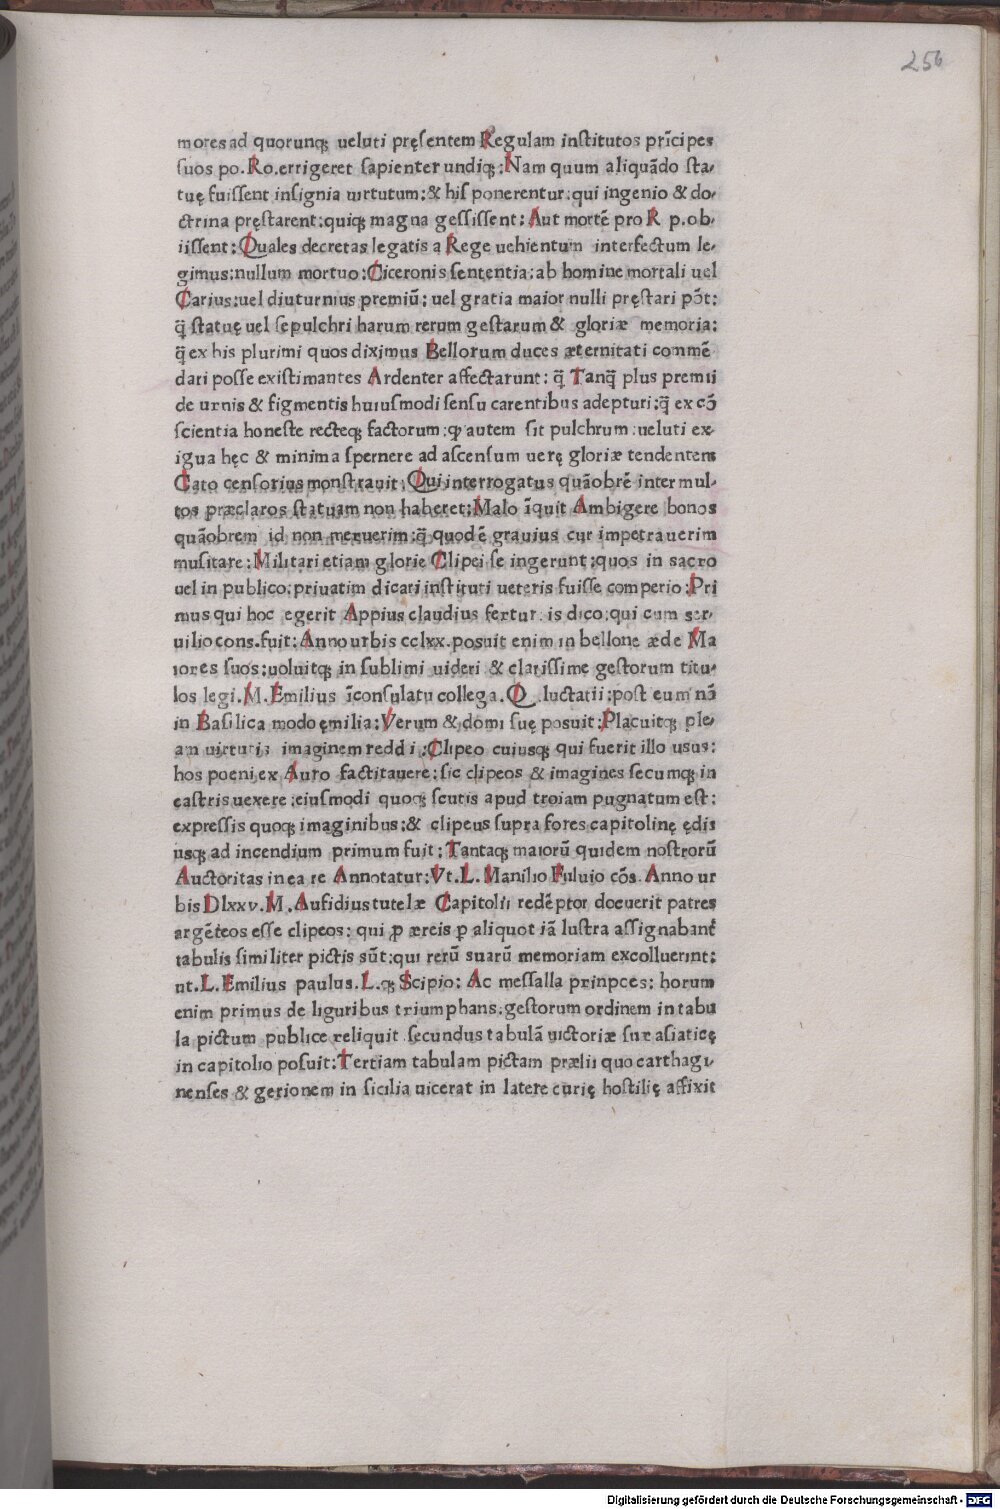 256
mores ad quorunq; ueluti pręsentem Regulam institutos prīcipes
suos po.Ro.errigeret sapienter undiq;:Nam quum aliquādo sta/
tuę fuissent insignia uirtutum:& his ponerentur:qui ingenio & do/
ctrina pręstarent:quiq; magna gessissent:Aut mortē pro R p.ob/
iissent:Quales decretas legatis a Rege uehientum interfectum le/
gimus:nullum mortuo:Ciceronis sententia:ab homine mortali uel
Carius:uel diuturnius premiū:uel gratia maior nulli pręstari pōt:
q̄ statuę uel sepulchri harum rerum gestarum & gloriæ memoria:
q̄ ex his plurimi quos diximus Bellorum duces æternitati commē
dari posse existimantes Ardenter affectarunt: q̄ Tanq̄ plus premii
de urnis & figmentis huiusmodi sensu carentibus adepturi:q̄ ex cō
scientia honeste recteq; factorum:ꝙ autem sit pulchrum:ueluti ex
igua hęc & minima spernere ad ascensum uerę gloriæ tendentem
Cato censorius monstrauit:Qui interrogatus quāobrē inter mul/
tos præclaros statuam non haberet:Malo īquit Ambigere bonos
quāobrem id non meruerim:q̄ quodē grauius cur impetrauerim
musitare:Militari etiam glorie Clipei se ingerunt:quos in sacro
uel in publico:priuatim dicari instituti ueteris fuisse comperio:Pri
mus qui hoc egerit Appius claudius fertur:is dico:qui cum ser/
uilio cons.fuit:Anno urbis cclxx.posuit enim in bellone æde Ma
iores suos:uoluitq; in sublimi uideri & clarissime gestorum titu/
los legi.M.Emilius īconsulatu collega.Q.luctatii:post eum nā
in Basilica modo ęmilia:Verum & domi suę posuit:Placuitq; ple/
am uirtutis imaginem reddi:Clipeo cuiusq; qui fuerit illo usus:
hos poeni ex Auro factitauere:sic clipeos & imagines secumq; in
castris uexere:eiusmodi quoq; scutis apud troiam pugnatum est:
expressis quoq; imaginibus:& clipeus supra fores capitolinę ędis
usq; ad incendium primum fuit:Tantaq; maiorū quidem nostrorū
Auctoritas in ea re Annotatur:Vt.L.Manilio Fuluio cōs.Anno ur
bis Dlxxv.M.Aufidius tutelæ Capitolii redēptor docuerit patres
argēteos esse clipeos: qui ꝓ æreis ꝑ aliquot iā lustra assignabant
tabulis similiter pictis sūt:qui rerū suarū memoriam excolluerint:
ut.L.Emilius paulus.L.q; Scipio: Ac messalla prinpces: horum
enim primus de liguribus triumphans:gestorum ordinem in tabu
la pictum publice reliquit secundus tabulā uictoriæ suæ asiaticę
in capitolio posuit:Tertiam tabulam pictam prælii quo carthagi/
nenses & gerionem in sicilia uicerat in latere curię hostilię affixit
Digitalisierung gefördert durch die Deutsche Forschungsgemeinschaft - DFG